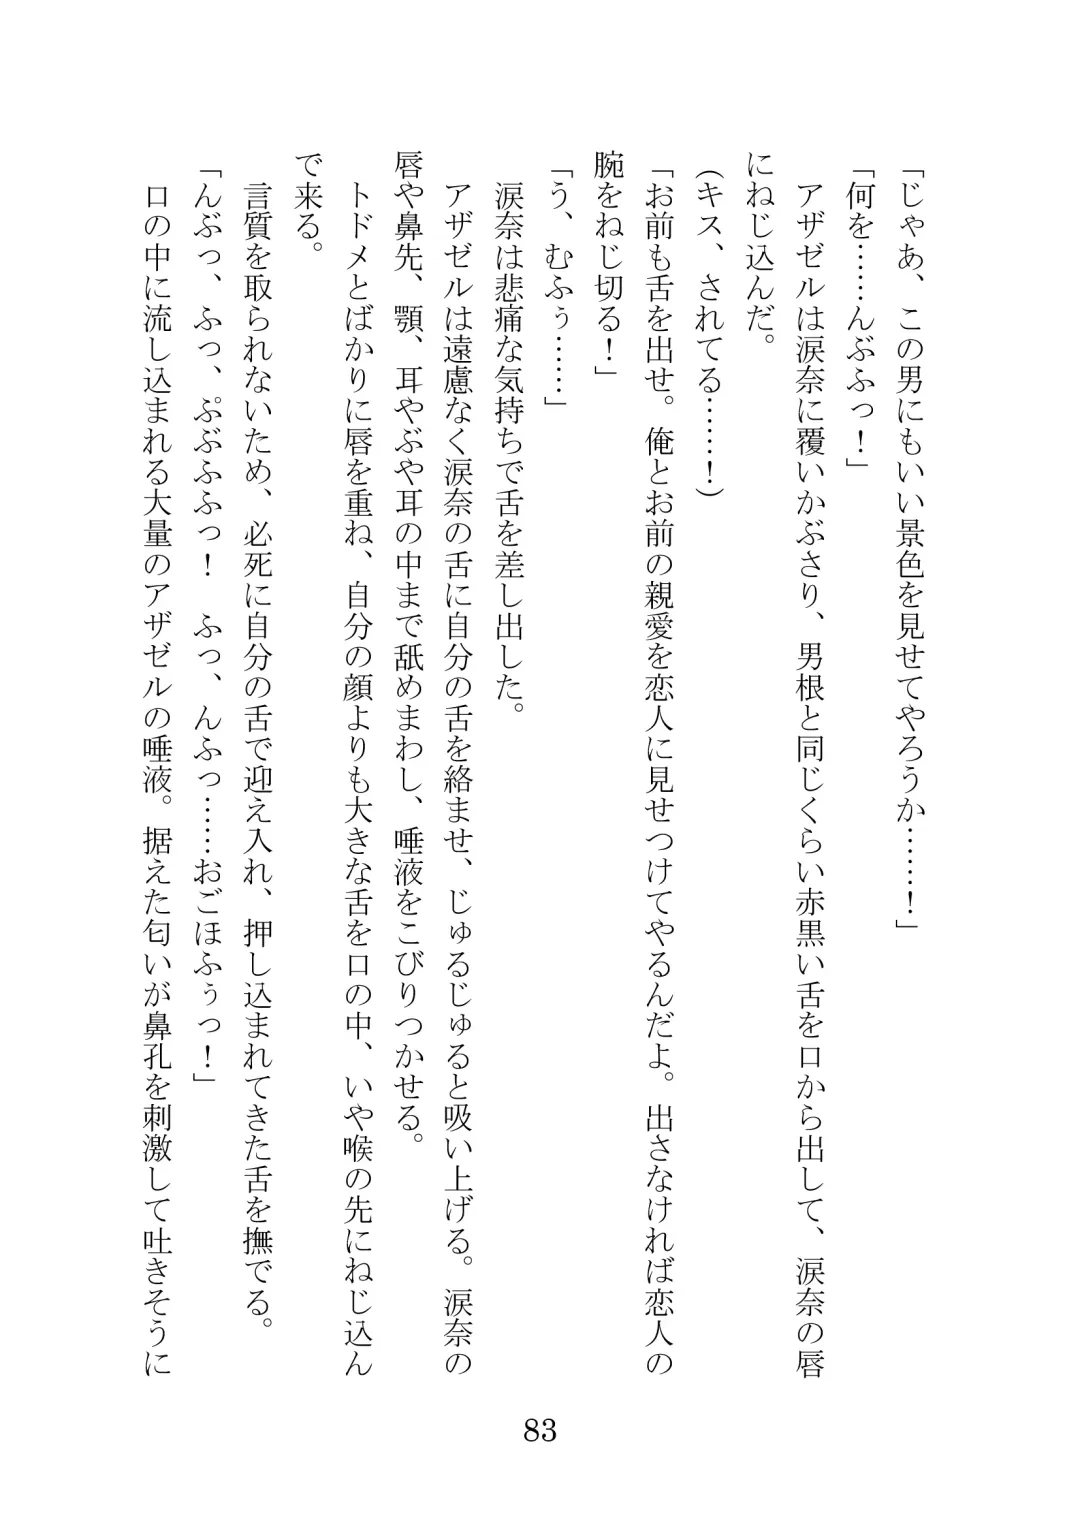 「じゃあ、この男にもいい景色を見せてやろうか……！」
「何を……んぶふっ！」
　アザゼルは涙奈に覆いかぶさり、男根と同じくらい赤黒い舌を口から出して、涙奈の唇
にねじ込んだ。
（キス、されてる……！）
「お前も舌を出せ。俺とお前の親愛を恋人に見せつけてやるんだよ。出さなければ恋人の
腕をねじ切る！」
「う、むふぅ……」
　涙奈は悲痛な気持ちで舌を差し出した。
　アザゼルは遠慮なく涙奈の舌に自分の舌を絡ませ、じゅるじゅると吸い上げる。涙奈の
唇や鼻先、顎、耳やぶや耳の中まで舐めまわし、唾液をこびりつかせる。
　トドメとばかりに唇を重ね、自分の顔よりも大きな舌を口の中、いや喉の先にねじ込ん
で来る。
　言質を取られないため、必死に自分の舌で迎え入れ、押し込まれてきた舌を撫でる。
「んぶっ、ふっ、ぷぶふふっ！　ふっ、んふっ……おごほふぅっ！」
　口の中に流し込まれる大量のアザゼルの唾液。据えた匂いが鼻孔を刺激して吐きそうに
83